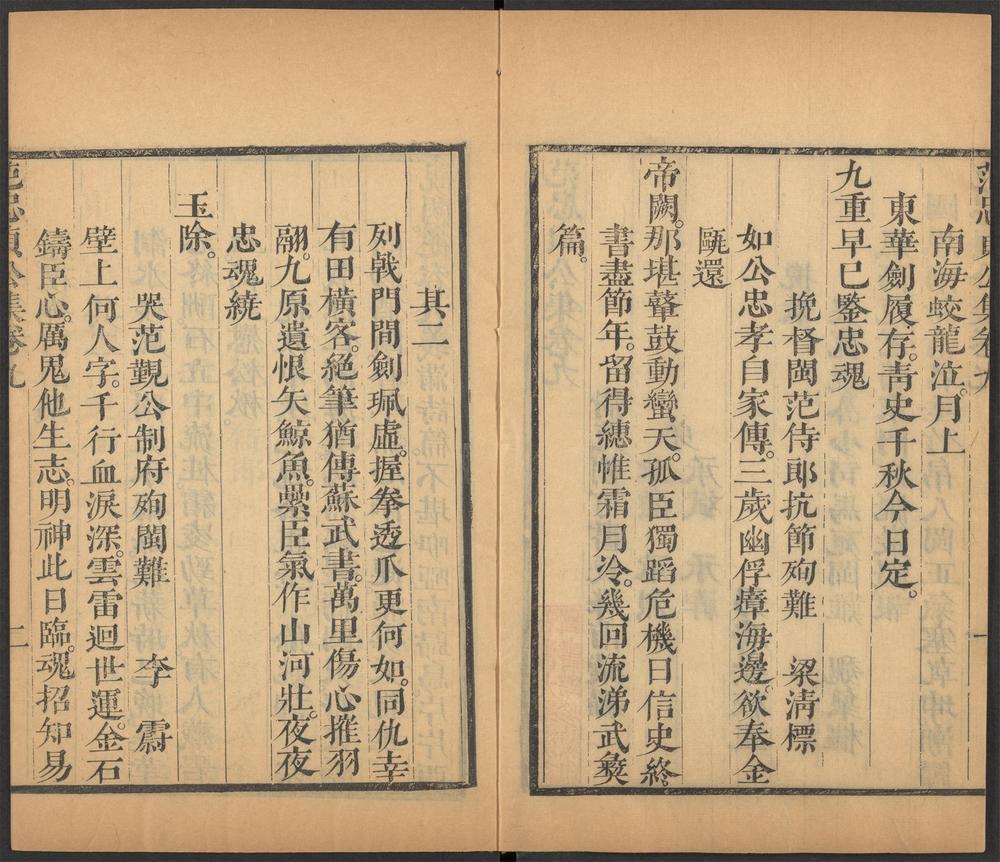 南海蛟龍泣。月上
東華劍履存。靑史千秋今日定。
九重早已鑒忠魂
挽督閩范侍郎抗節殉難 梁淸標
如公忠孝自家傳。三歲幽俘瘴海邊。欲奉金
甌還
帝闕。那堪鼙鼓動蠻天。孤臣獨蹈危機日信史終
書盡節年。留得繐帷霜月冷。幾回流涕武夔
篇。
其二
列戟門間劍珮虛。握拳透爪更何如。同仇幸
有田橫客。絕筆猶傳蘇武書。萬里傷心摧羽
翮。九原遺恨矢鯨魚。纍臣氣作山河壯。夜夜
忠魂繞
玉除。
哭范覲公制府殉閩難 李霨
壁上何人字。千行血淚深。雲雷迴世運。金石
鑄臣心。厲鬼他生志。明神此日臨。魂招知易
范忠貞公集卷九 二